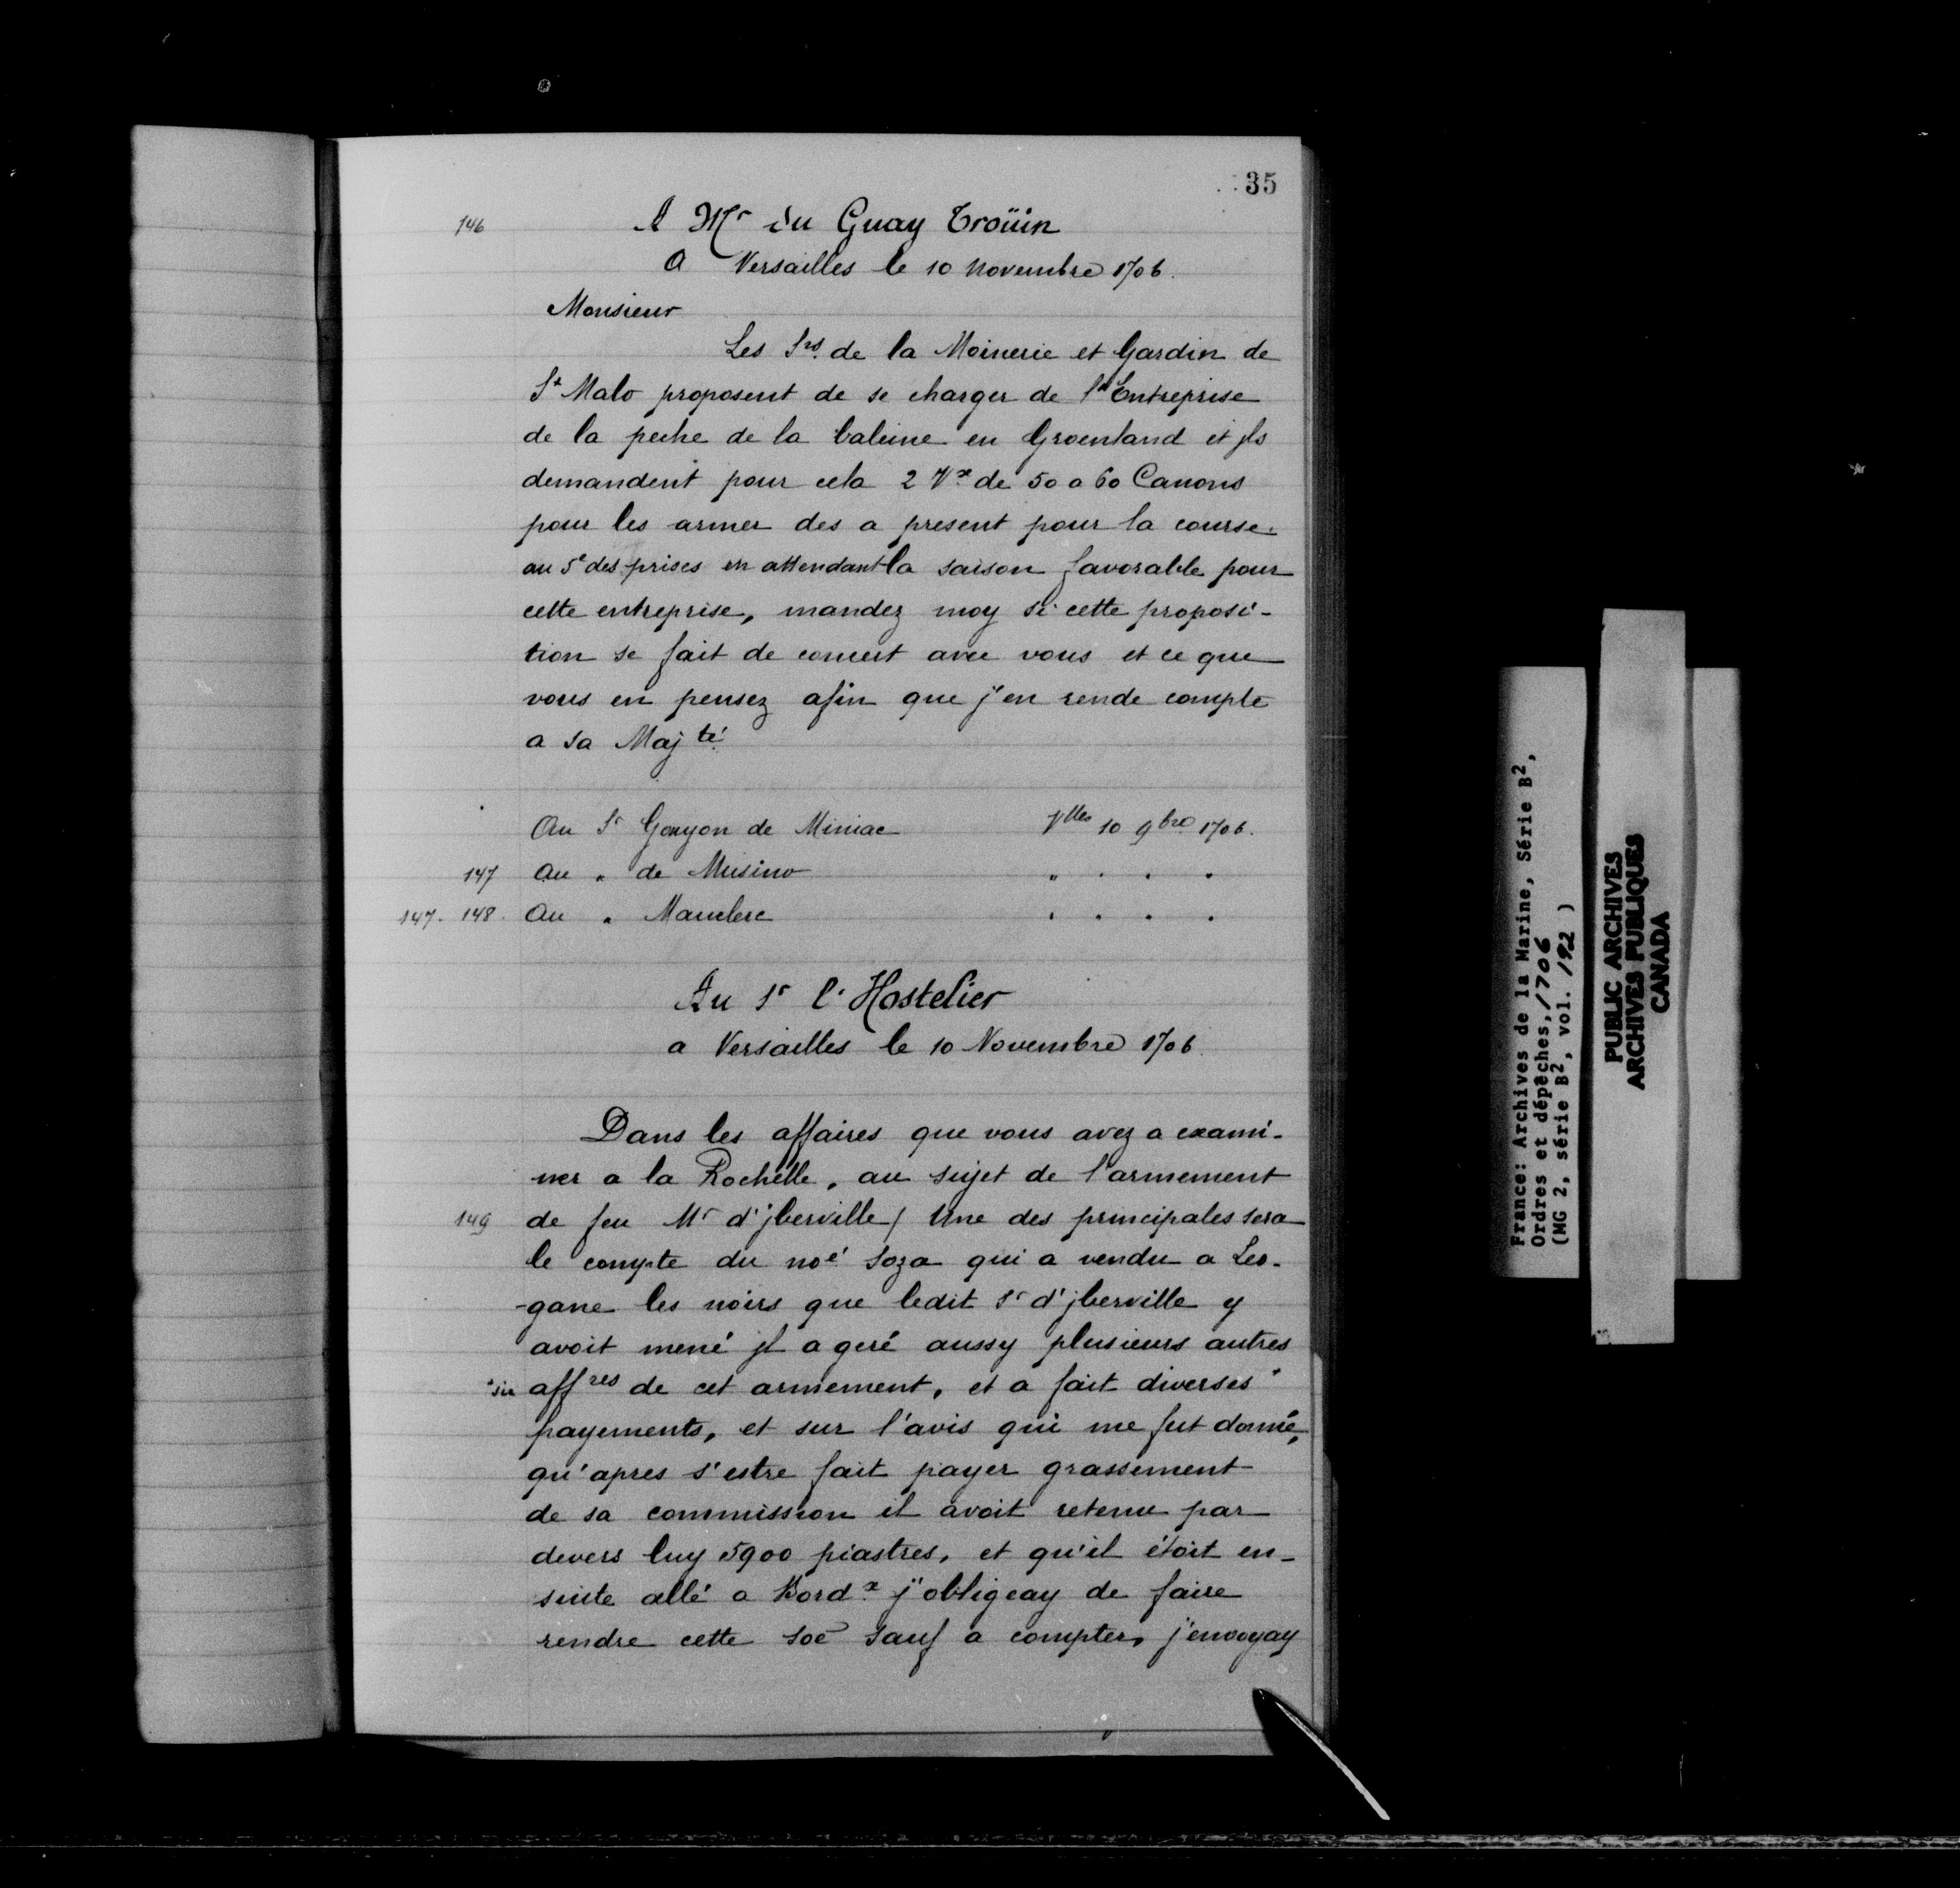 35
146 A Mr du Guay Troüin
A Versailles le 10 Novembre 1706.
Monsieur
Les Srs. de la Moinerie et Gardin de
St Malo proposent de se charger de l'Entreprise
de la peche de la baleine en Groenland et jls
demandent pour cela 2 Vx de 50 a 60 Canons
pour les armer des a present pour la course.
au 5e des prises en attendant la saison favorable pour
cette entreprise, mandez moy si cette proposi-
tion se fait de concert avec vous et ce que
vous en pensez afin que j'en rende compte
a sa Majté.
Au Sr Gouyon de Miniac Vlles 10 9bre 1706.
147 Au " de Musino " " " "
147. 148. Au " Mauclerc " " " "
Au Sr l'Hostelier
a Versailles le 10 Novembre 1706.
Dans les affaires que vous avez a exami-
ner a la Rochelle, au sujet de l'armement
149 de feu Mr d'jberville / Une des principales sera
le compte du noé Soza qui a vendu a Leo-
-gane les noirs que ledit Sr d'jberville y
avoit mené jl a geré aussy plusieurs autres
*sic affres de cet armement, et a fait diverses*
payements, et sur l'avis qui me fut donné,
qu'apres s'estre fait payer grassement
de sa commission il avoit retenu par
devers luy 5900 piastres, et qu'il étoit en-
suite allé a Bordx. j'obligeay de faire
rendre cette soe sauf a compter, j'envoyay
France: Archives de la Marine, Série B2,
Ordres et dépêches, 1706
(MG 2, série B2, vol. 192 )
PUBLIC ARCHIVES
ARCHIVES PUBLIQUES
CANADA